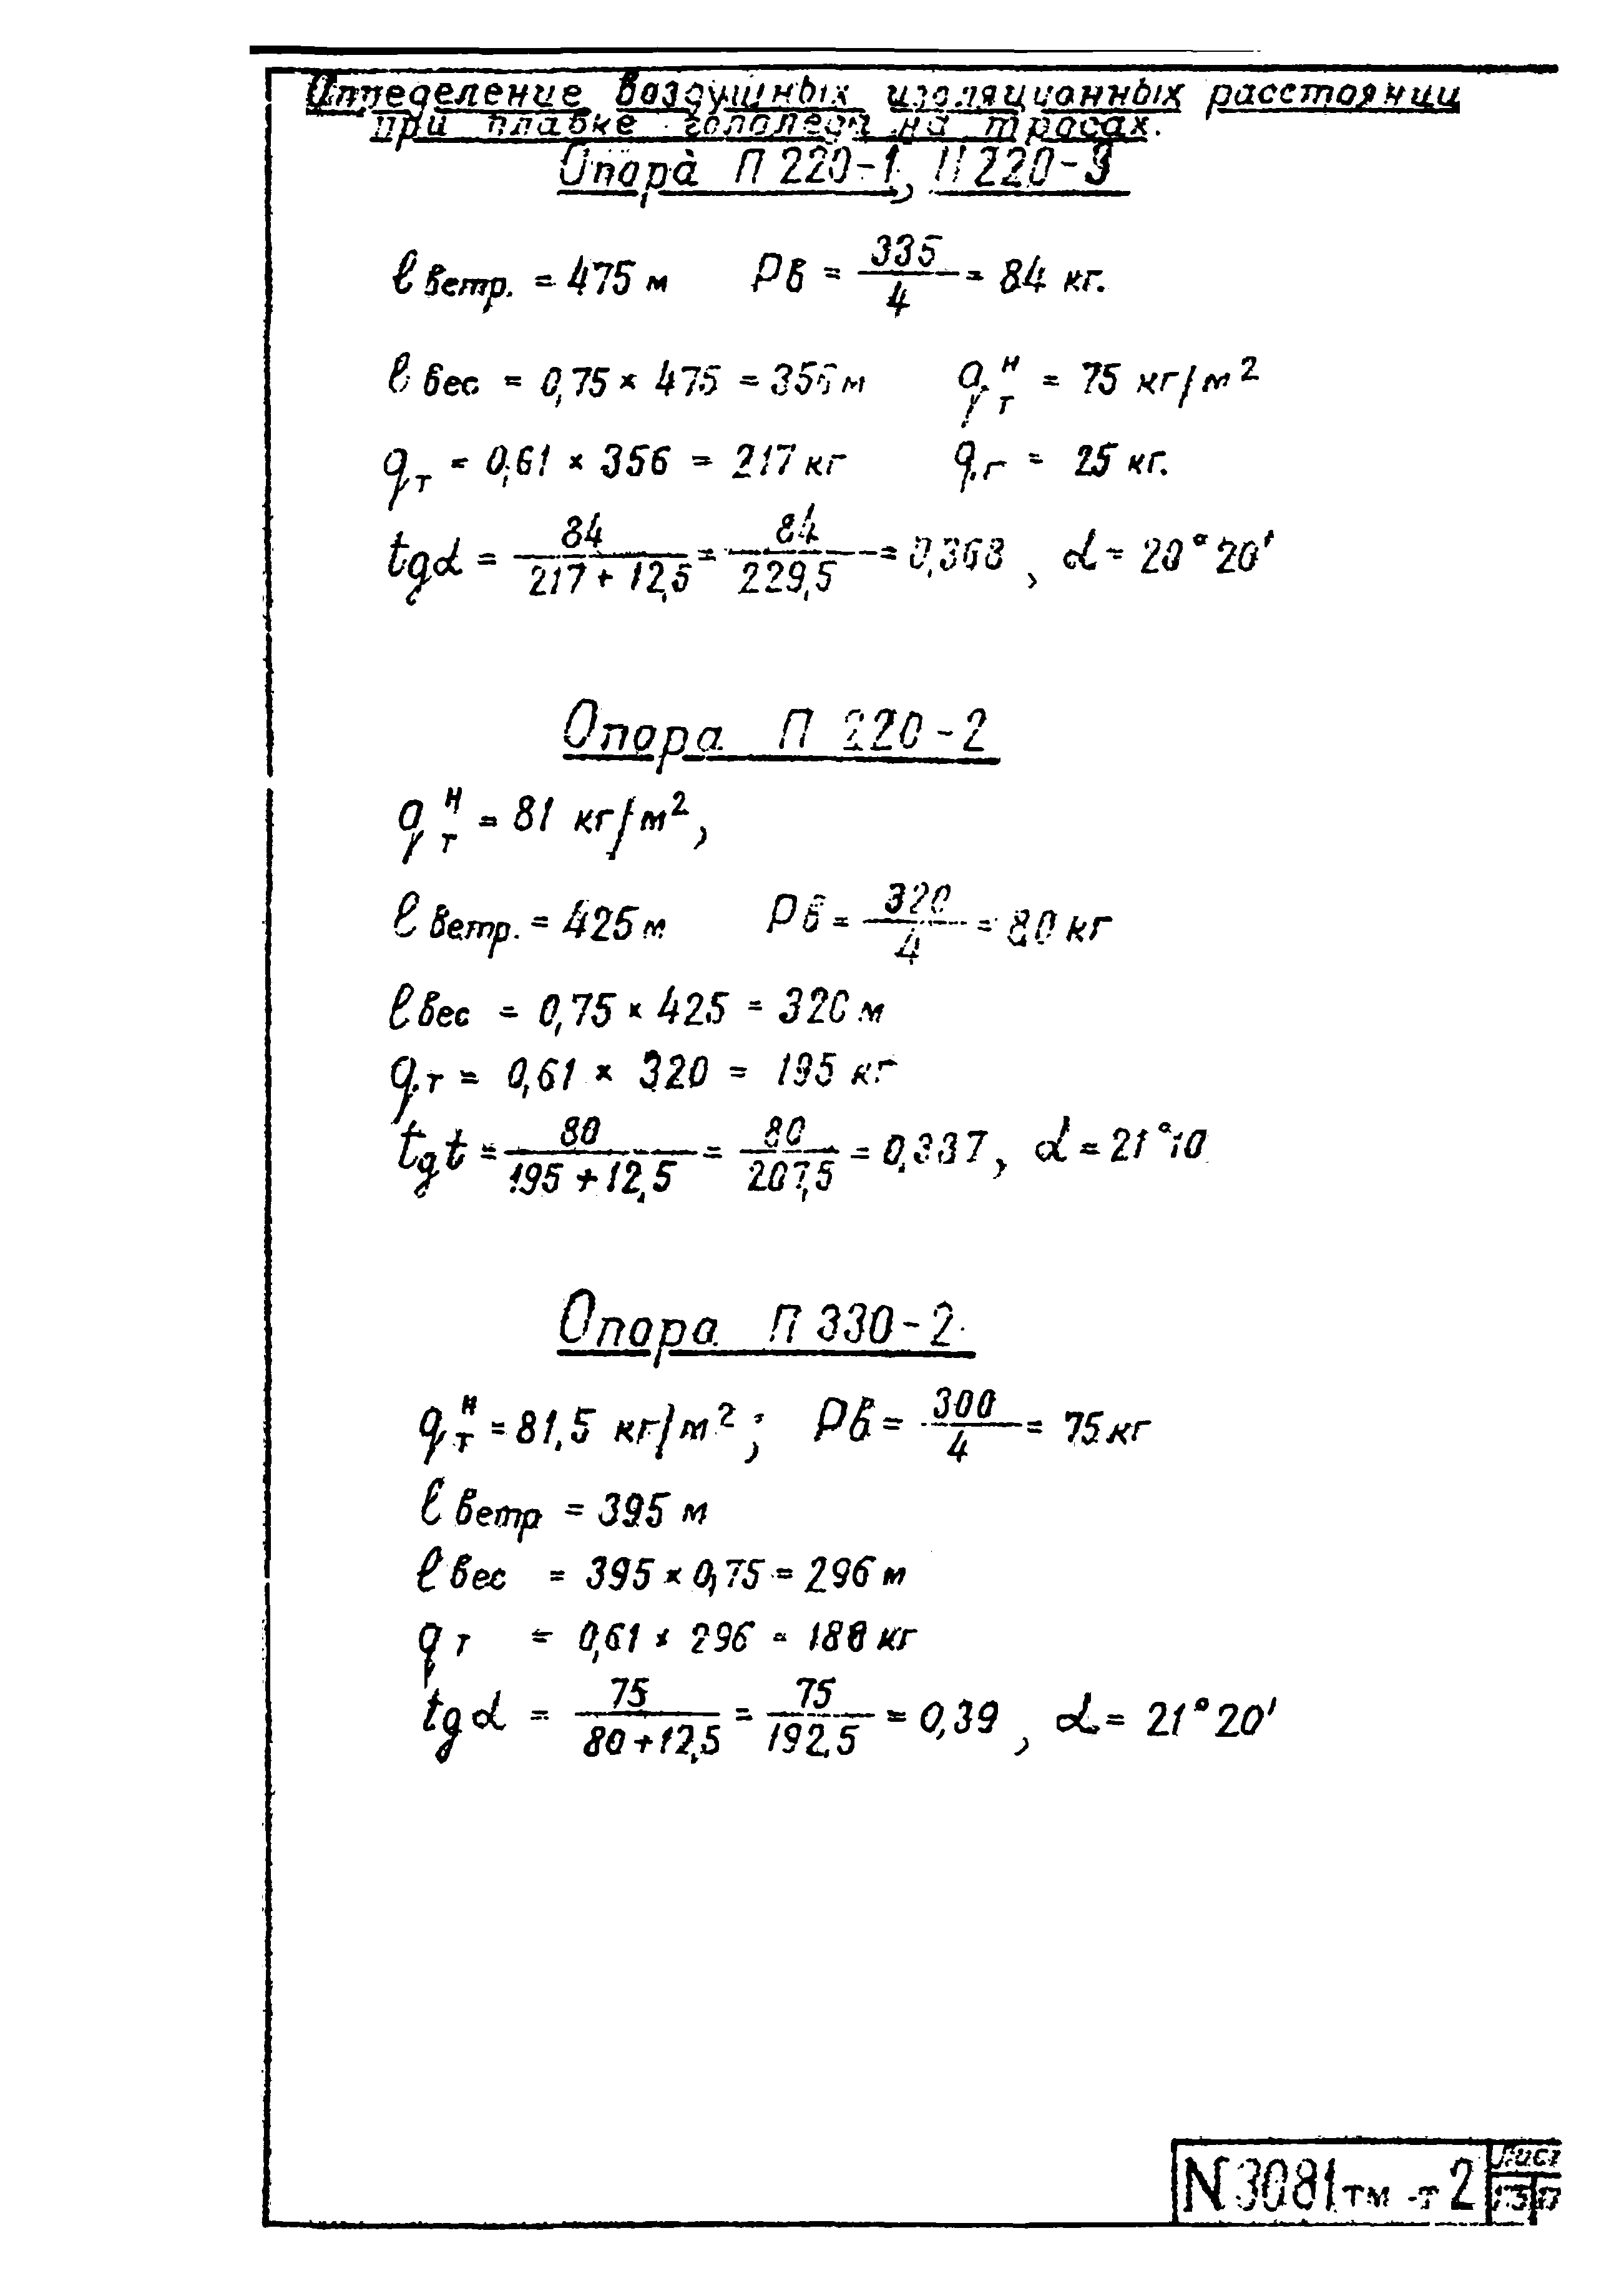 Определение воздушных изоляционных расстоянии
при плавке гололеда на тросах.
Опора П 220-1, П 220-3
ℓ ветр. = 475 м Pв = 335/4 = 84 кг.
ℓ вес = 0,75 × 475 = 356 м q т н = 75 кг/м²
q т = 0,61 × 356 = 217 кг q г = 25 кг.
tg α = 84/(217 + 12,5) = 84/229,5 = 0,368 , α = 20° 20'
Опора П 220-2
q т н = 81 кг/м²,
ℓ ветр. = 425 м Pв = 320/4 = 80 кг
ℓ вес = 0,75 × 425 = 320 м
q т = 0,61 × 320 = 195 кг
tg t = 80/(195 + 12,5) = 80/207,5 = 0,387, α = 21° 10
Опора П 330-2
q т н = 81,5 кг/м² ; Pв = 300/4 = 75 кг
ℓ ветр = 395 м
ℓ вес = 395 × 0,75 = 296 м
q т = 0,61 × 296 = 180 кг
tg α = 75/(80 + 12,5) = 75/192,5 = 0,39 , α = 21° 20'
N 3081тм-т2 Лист